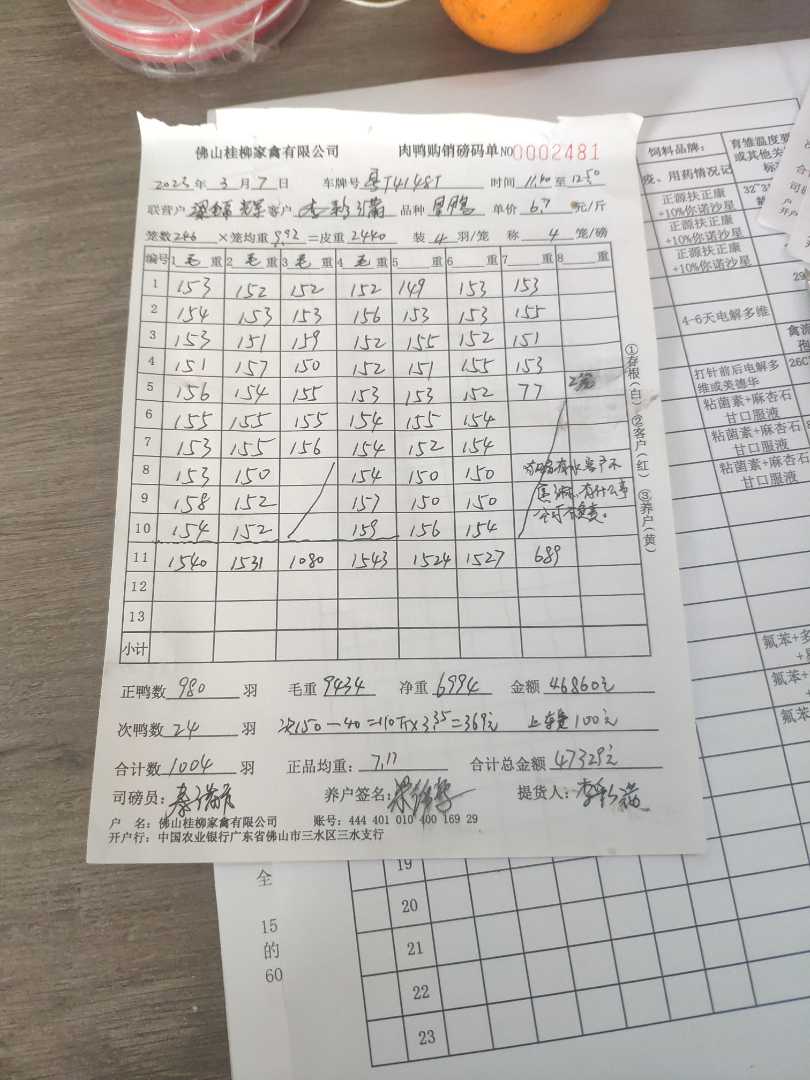 佛山桂柳家禽有限公司 肉鸭购销磅码单 NO 0002481
2023年 3月 7日 车牌号 粤T4148T 时间 11.40 至 1250
联营户 客户 品种 单价 6.7 元/斤
笼数 246 ×笼均重 9.92 =皮重 2440 装 4 羽/笼 称 4 笼/磅
编号 1 毛 重 2 毛 重 3 毛 重 4 毛 重 5 重 6 重 7 重 8 重
1 153 152 152 152 149 153 153
2 154 153 153 156 153 153 155
3 153 151 159 152 155 152 151
4 151 157 150 152 151 155 153
5 156 154 155 153 153 152 77
6 155 155 155 154 155 154
7 153 155 156 154 152 154
8 153 150 154 150 150
9 158 152 157 150 150
10 154 152 159 156 154
11 1540 1531 1080 1543 1524 1527 689
12
13
小计
正鸭数 980 羽 毛重 9434 净重 6994 金额 46860元
次鸭数 24 羽 次150-40=110斤×3.35=369元 100元
合计数 1004 羽 正品均重: 7.17 合计总金额 47329元
司磅员: 养户签名: 提货人:
户 名: 佛山桂柳家禽有限公司 账号: 444 401 010 400 169 29
开户行: 中国农业银行广东省佛山市三水区三水支行
①存根(白) ②客户(红) ③养户(黄)
饲料品牌:
育雏温度要
或其他关
疫、用药情况记
正源扶正康
+10%你诺沙星
正源扶正康
+10%你诺沙星
正源扶正康
+10%你诺沙星
4-6天电解多维
打针前后电解多
维或美德华
粘菌素+麻杏石
甘口服液
粘菌素+麻杏石
甘口服液
粘菌素+麻杏石
甘口服液
氟苯+多
氟苯+
氟苯+
全
15
的
60
19
20
21
22
23